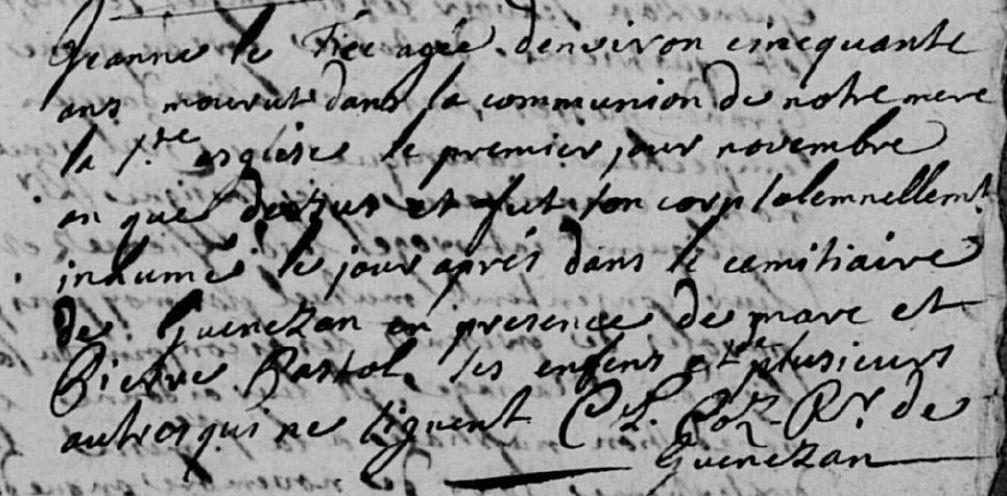 Jeanne le Fiec agée denviron cincquante
ans mourut dans la communion de notre mere
la s.te esglise le premier jour novembre
an que dessus et fut son corp solemnellemt
inhumé le jour aprés dans le cemitiaire
de Guenezan en presence de marc et
Pierre Bastol, ses enfens et de plusieurs
autres qui ne signent C L. R.r de
Guenezan